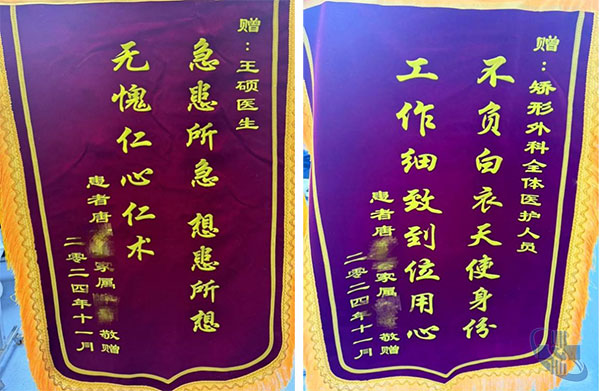 赠：王硕医生
急患所急 想患所想
无愧仁心仁术
患者唐 家属 敬赠
二零二四年十一月
赠：矫形外科全体医护人员
不负白衣天使身份
工作细致到位用心
患者唐 家属 敬赠
二零二四年十一月